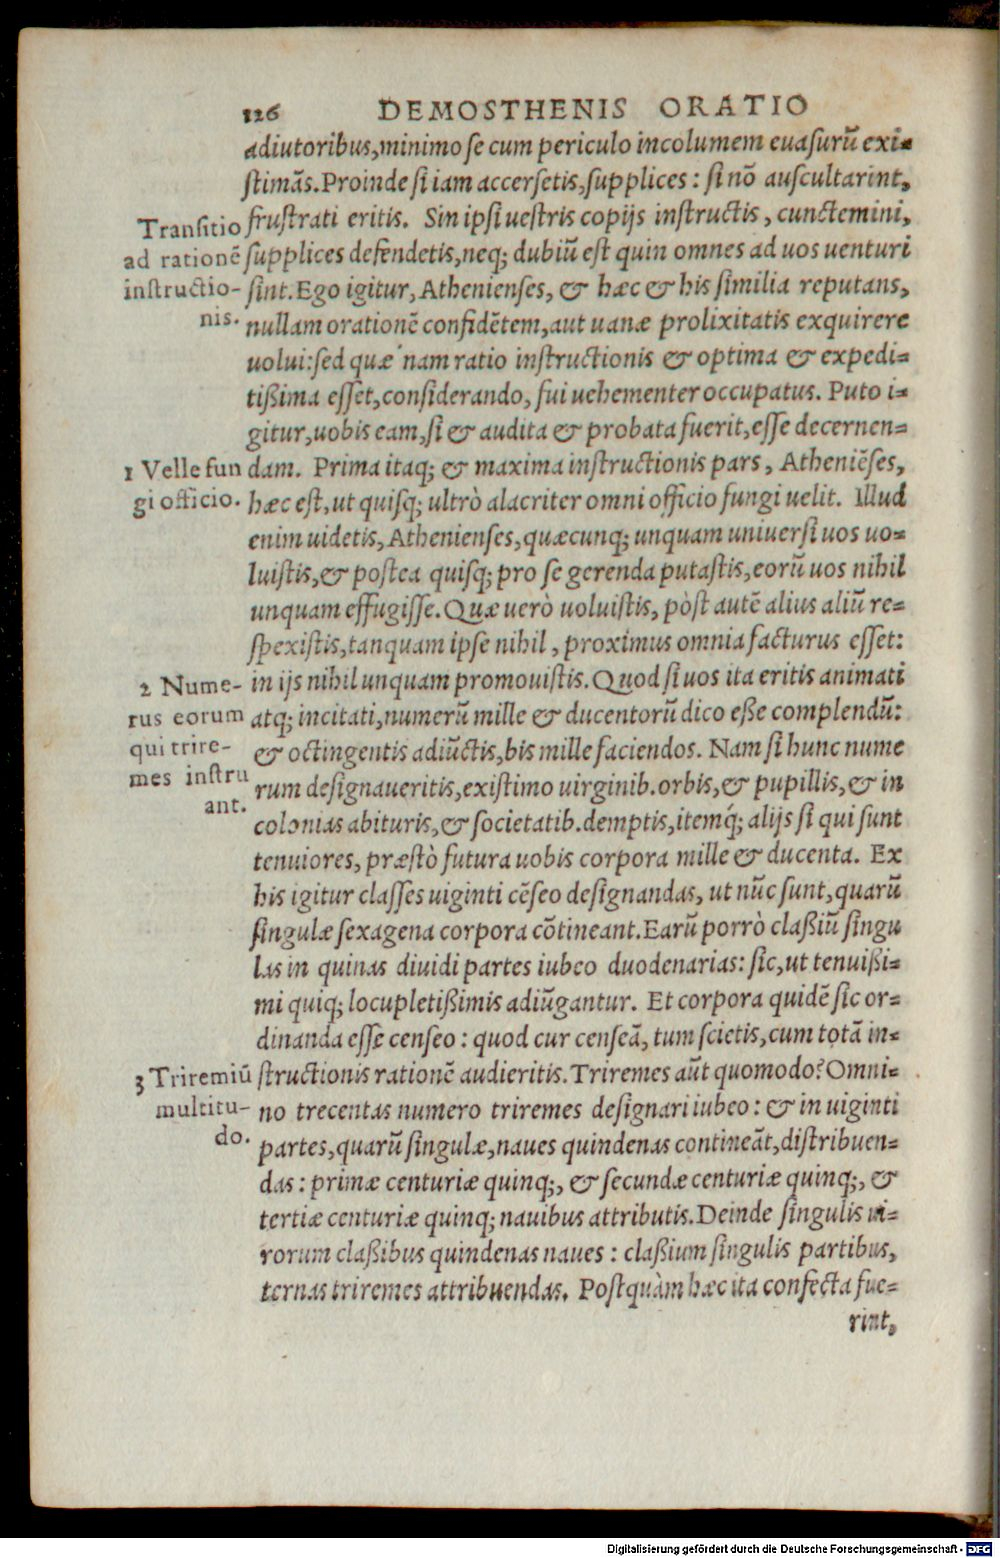 126 DEMOSTHENIS ORATIO
adiutoribus, minimo se cum periculo incolumem euasurũ exi-
stimãs. Proinde si iam accersetis, supplices: si nõ auscultarint,
frustrati eritis. Sin ipsi uestris copijs instructis, cunctemini,
supplices defendetis, neq; dubiũ est quin omnes ad uos uenturi
sint. Ego igitur, Athenienses, & hæc & his similia reputans,
nullam orationẽ confidẽtem, aut uanæ prolixitatis exquirere
uolui: sed quæ nam ratio instructionis & optima & expedi-
tißima esset, considerando, fui uehementer occupatus. Puto i-
gitur, uobis eam, si & audita & probata fuerit, esse decernen-
dam. Prima itaq; & maxima instructionis pars, Atheniẽses,
hæc est, ut quisq; ultrò alacriter omni officio fungi uelit. Illud
enim uidetis, Athenienses, quæcunq; unquam uniuersi uos uo-
luistis, & postea quisq; pro se gerenda putastis, eorũ uos nihil
unquam effugisse. Quæ uerò uoluistis, pòst autẽ alius aliũ re-
spexistis, tanquam ipse nihil, proximus omnia facturus esset:
in ijs nihil unquam promouistis. Quod si uos ita eritis animati
atq; incitati, numerũ mille & ducentorũ dico eße complendũ:
& octingentis adiũctis, bis mille faciendos. Nam si hunc nume
rum designaueritis, existimo uirginib. orbis, & pupillis, & in
colonias abituris, & societatib. demptis, itemq́; alijs si qui sunt
tenuiores, præstò futura uobis corpora mille & ducenta. Ex
his igitur classes uiginti cẽseo designandas, ut nũc sunt, quarũ
singulæ sexagena corpora cõtineant. Earũ porrò claßiũ singu
las in quinas diuidi partes iubeo duodenarias: sic, ut tenuißi-
mi quiq; locupletißimis adiũgantur. Et corpora quidẽ sic or-
dinanda esse censeo: quod cur censeã, tum scietis, cum totã in-
structionis rationẽ audieritis. Triremes aũt quomodo? Omni-
no trecentas numero triremes designari iubeo: & in uiginti
partes, quarũ singulæ, naues quindenas contineãt, distribuen-
das: primæ centuriæ quinq;, & secundæ centuriæ quinq;, &
tertiæ centuriæ quinq; nauibus attributis. Deinde singulis ui-
rorum claßibus quindenas naues: claßium singulis partibus,
ternas triremes attribuendas. Postquàm hæc ita confecta fue-
rint,
Transitio
ad rationẽ
instructio-
nis.
1 Velle fun
gi officio.
2 Nume-
rus eorum
qui trire-
mes instru
ant.
3 Triremiũ
multitu-
do.
Digitalisierung gefördert durch die Deutsche Forschungsgemeinschaft - DFG